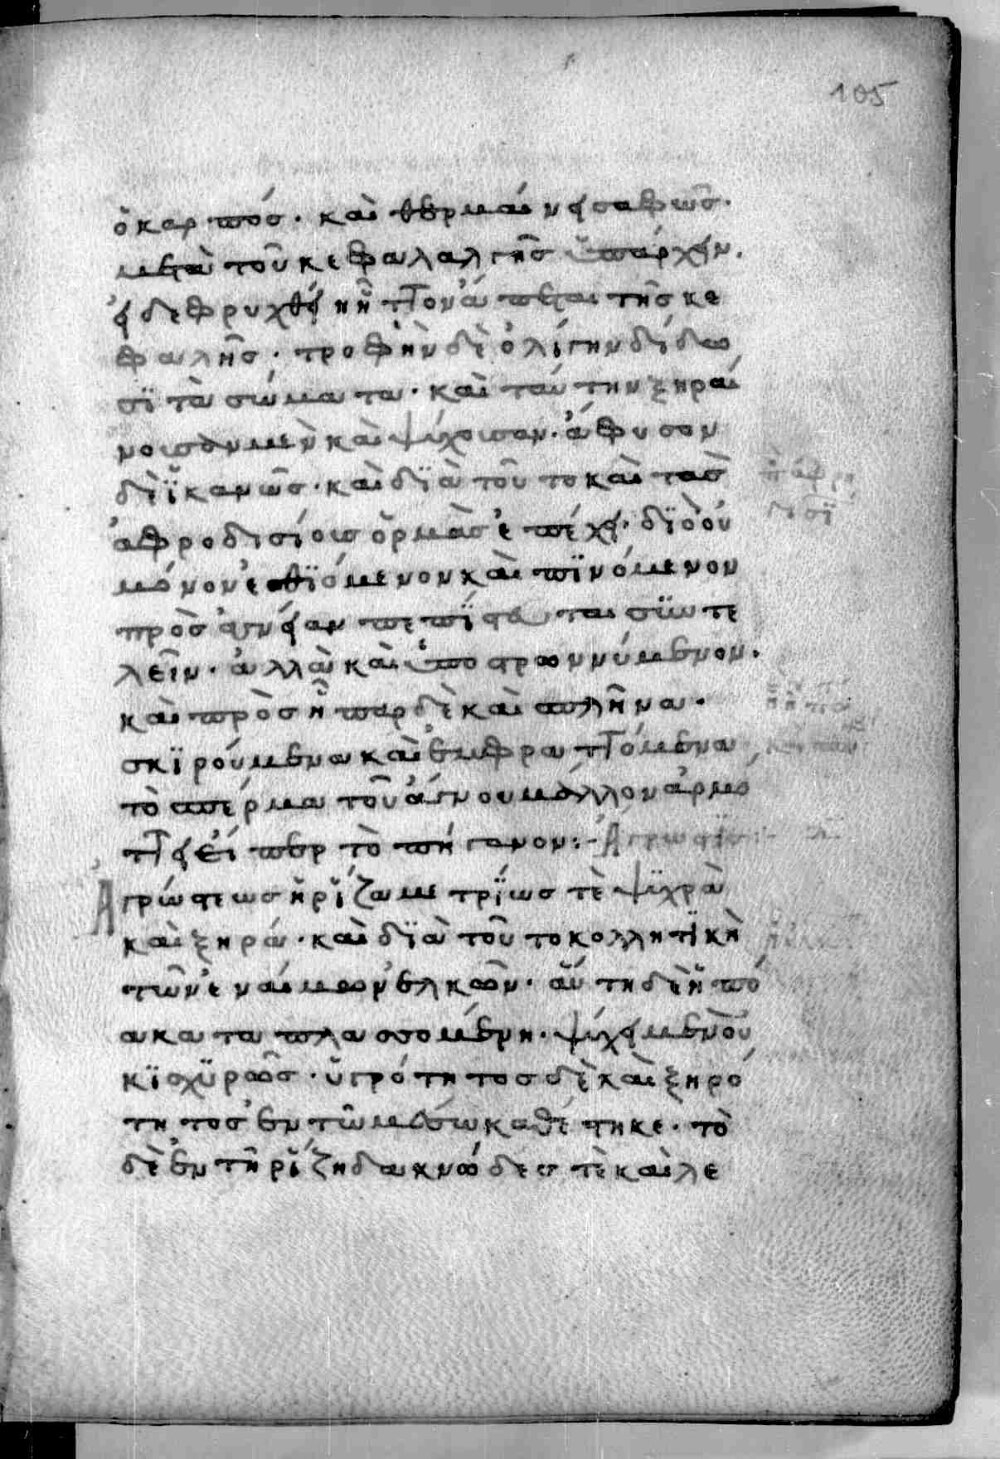 105
ὁ καρπός· καὶ θερμαίνει σαφῶς·
μετὰ τοῦ κεφαλαλγῆς ὑπάρχειν.
εἰ δὲ φρυχθείη ἧττον ἅπτεται τῆς κε
φαλῆς· τροφὴν δὲ ὀλίγην δίδω
σϊ τὰ σώματα· καὶ ταύτην ξηραί
νουσαν μὲν καὶ ψύχουσαν· ἄφυσον
δὲ ϊκανῶς· καὶ δϊὰ τοῦτο καὶ τὰς
ἀφροδισίοις ὁρμὰς ἐπέχει· δϊὸ οὐ
μόνον ἐσθϊόμενον καὶ πϊνόμενον
πρὸς ἁγνείαν πεπίστευται συντε
λεῖν· ἀλλὰ καὶ ὑποστρωννύμενον.
καὶ πρὸς ἧπαρ δὲ καὶ σπλῆνα·
σκϊρούμενα καὶ ἐμφραττόμενα
τὸ σπέρμα τοῦ ἄγνου μᾶλλον ἁρμό
ττει εἴπερ τὸ πήγανον:-
Ἀγρώστεως ἡ ῥίζα μετρίως τὲ ψϋχρὰ
καὶ ξηρά· καὶ δϊὰ τοῦτο κολλητϊκὴ
τῶν ἐναίμων ἑλκῶν· αὕτη δὲ ἡ πό
α καταπλασσομένη· ψύχει μὲν οὐ
κ ϊσχϋρῶς· ὑγρότητος δὲ καὶ ξηρό
τητος ἐν τῶ μέσω καθέστηκε· τὸ
δὲ ἐν τῆ ῥίζη δακνῶδες τὲ καὶ λε